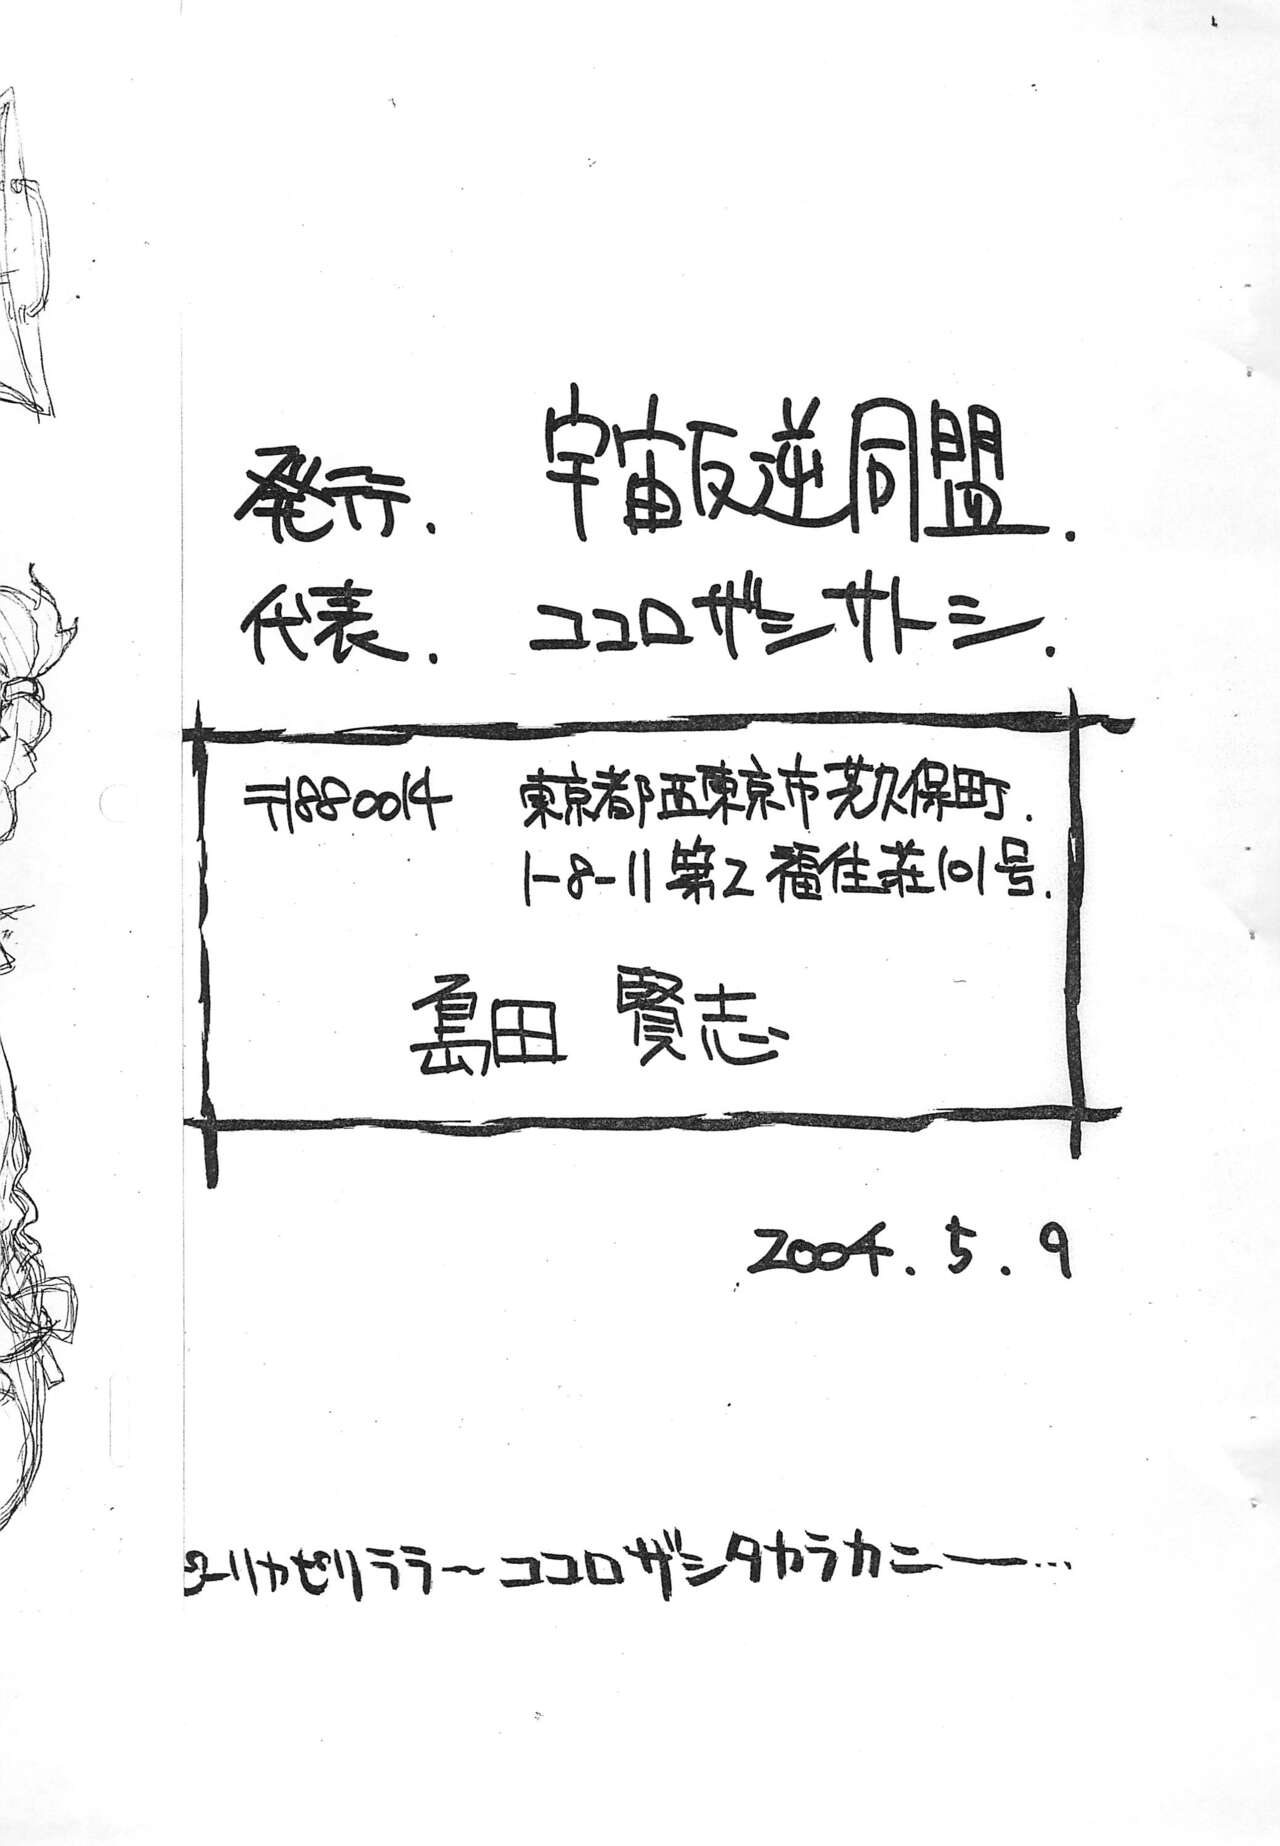 発行. 宇宙反逆同盟.
代表. ココロザシサトシ.
〒1880014 東京都西東京市芝久保田町.
1-8-11 第2福住荘101号.
島田 賢志
2004.5.9
ピーリカピリララ～ココロザシタカラカニー…